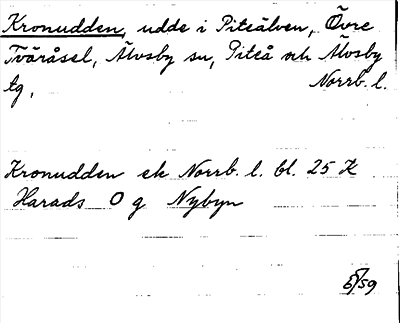 Kronudden, udde i Piteälven, Övre
Tväråsel, Älvsby sn, Piteå och Älvsby
tg, Norrb. l.
Kronudden ek Norrb. l. bl. 25 K
Harads O g Nybyn
5/59